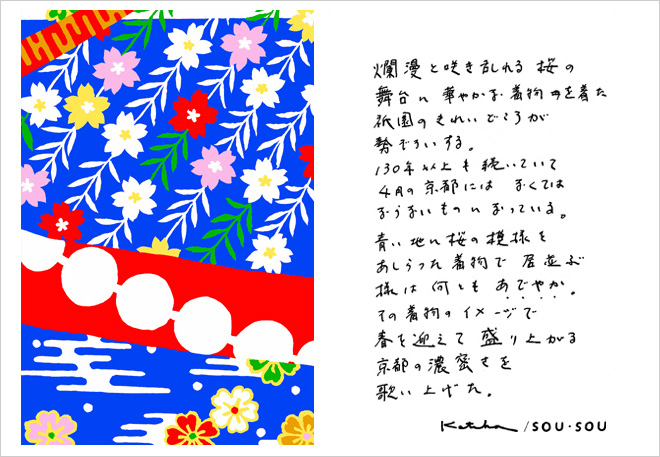 爛漫と咲き乱れる桜の
舞台に華やかな着物を着た
祇園のきれいどころが
勢ぞろいする。
130年以上も続いていて
4月の京都には なくては
ならないものになっている。
青い地に桜の模様を
あしらった着物で居並ぶ
様は何ともあでやか。
その着物のイメージで
春を迎えて盛り上がる
京都の濃密さを
歌い上げた。
Katsuhiko / SOU・SOU